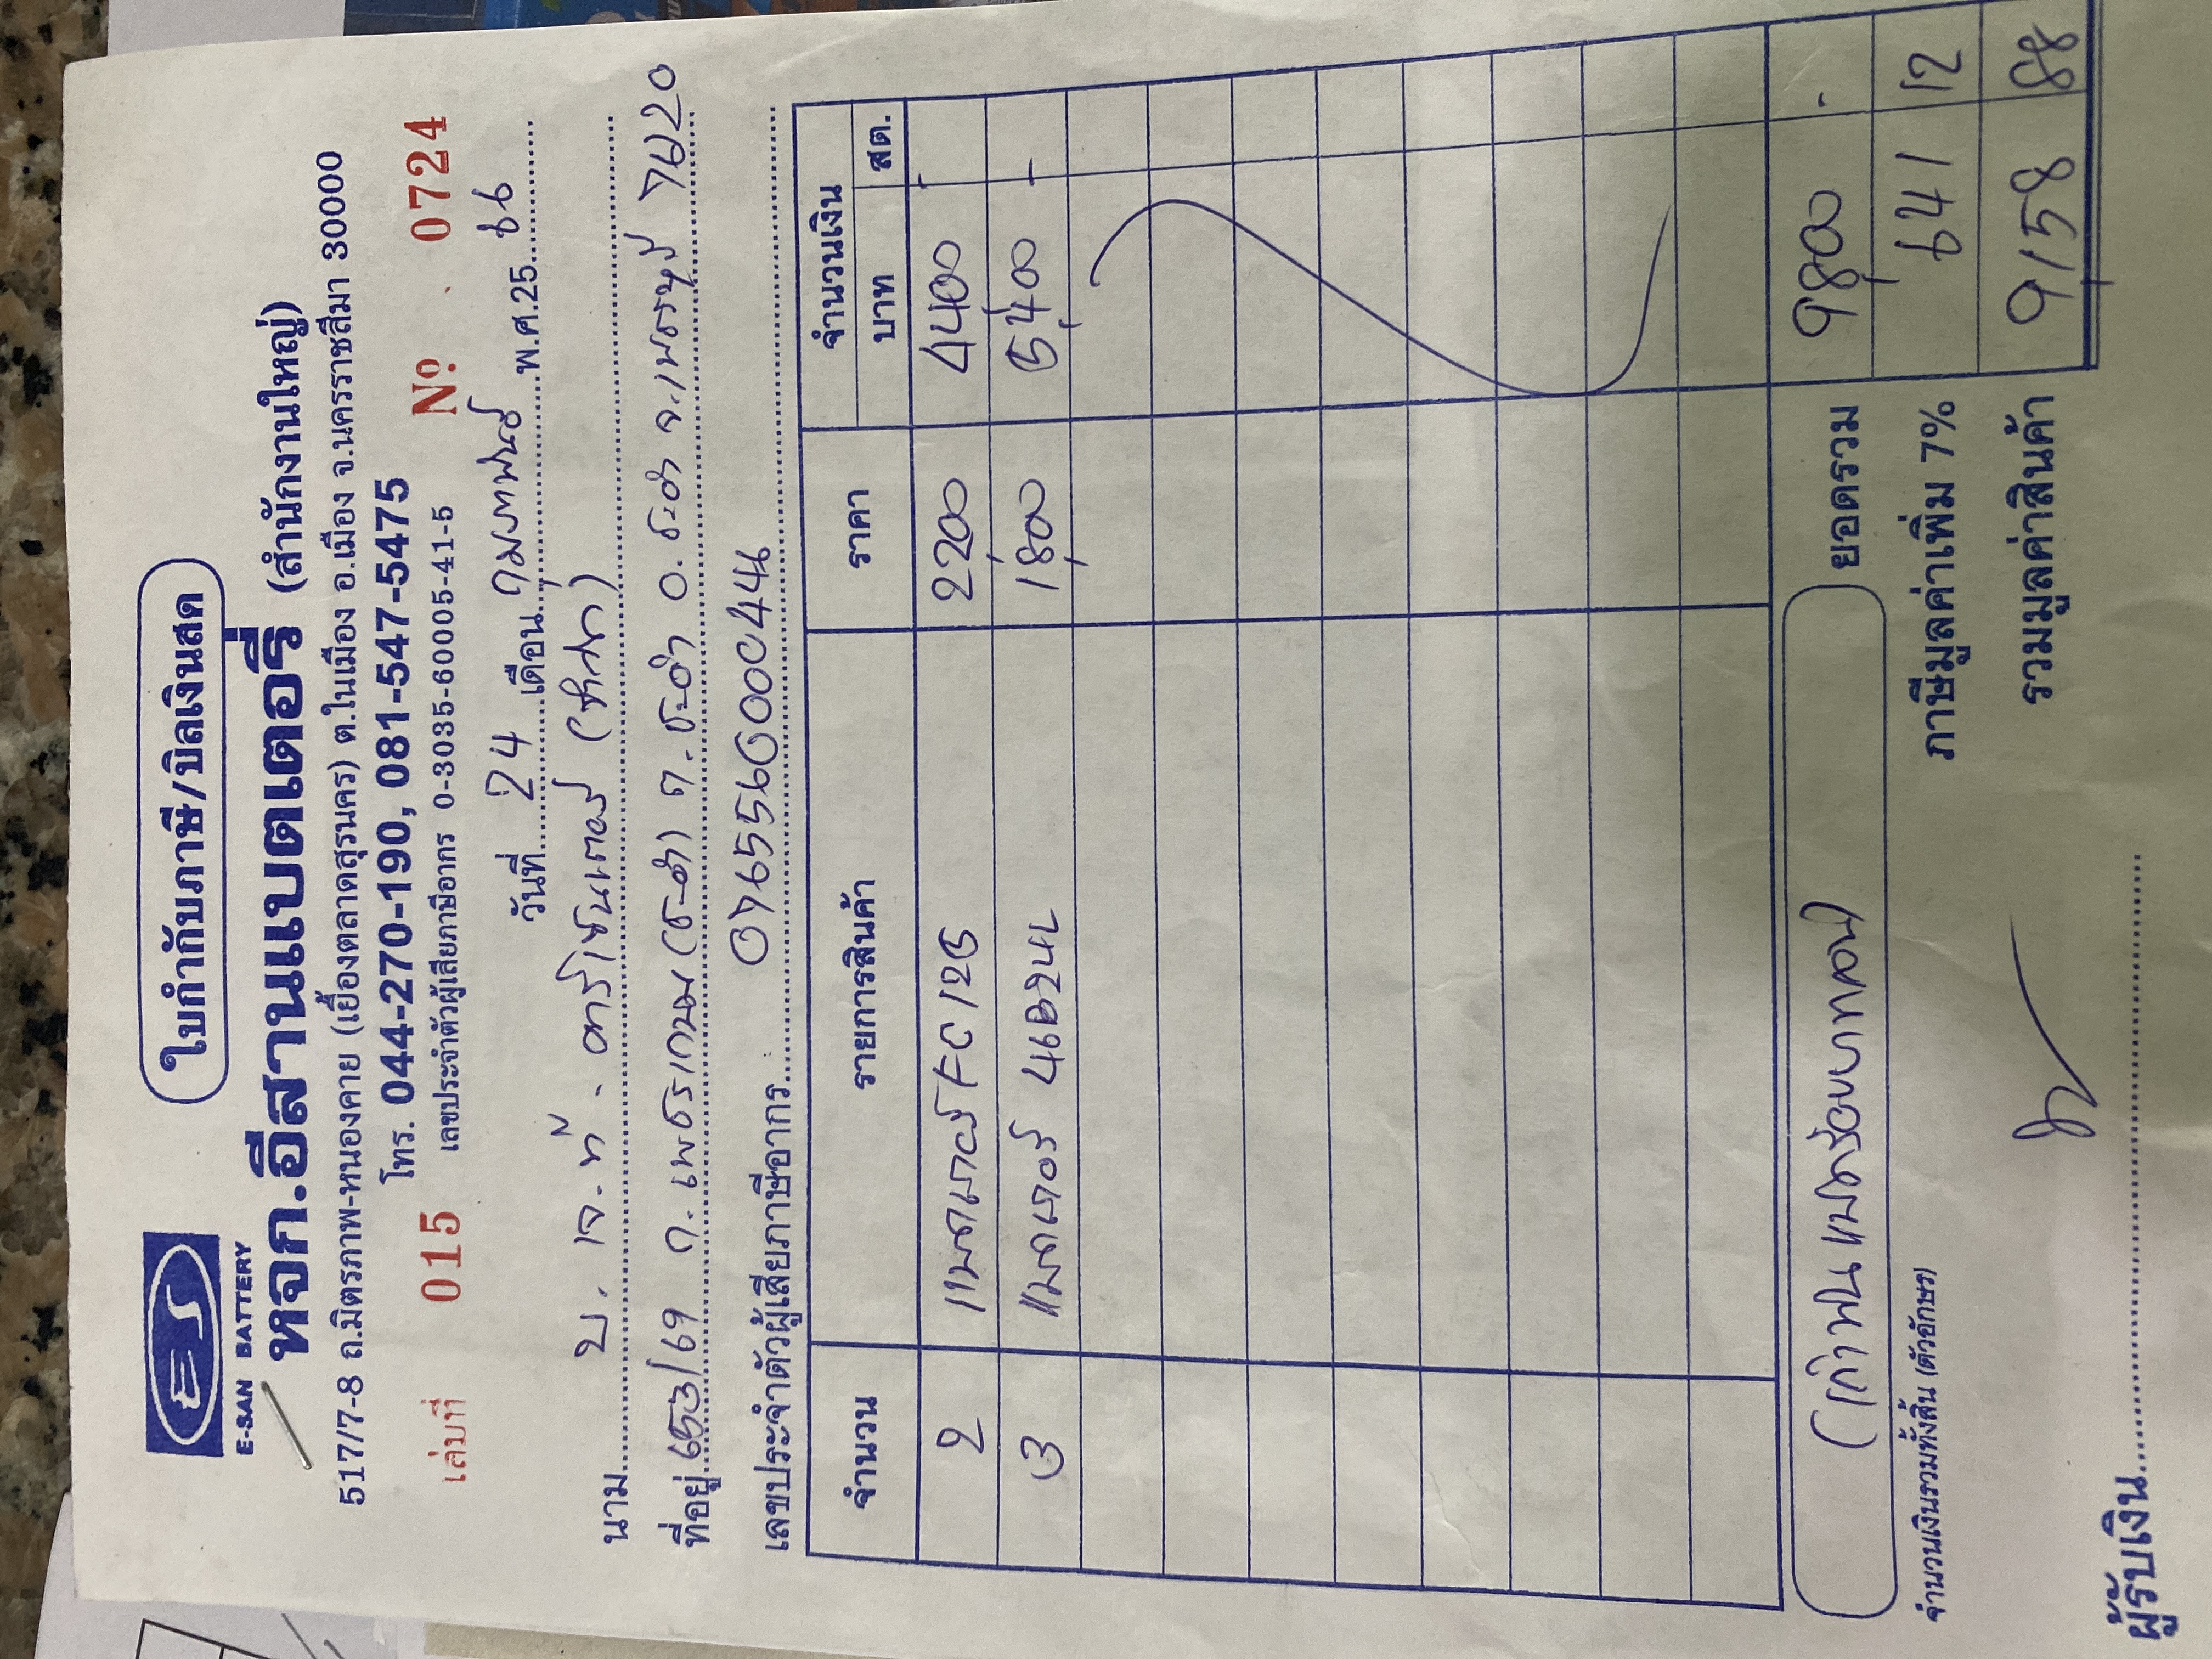 ใบกำกับภาษี/บิลเงินสด
ES
E-SAN BATTERY
หจก.อีสานแบตเตอรี่ (สำนักงานใหญ่)
517/7-8 ถ.มิตรภาพ-หนองคาย (เยื้องตลาดสุรนคร) ต.ในเมือง อ.เมือง จ.นครราชสีมา 30000
โทร. 044-270-190, 081-547-5475
เลขประจำตัวผู้เสียภาษีอากร 0-3035-60005-41-5
เล่มที่ 015 Nº 0724
วันที่ 24 เดือน กุมภาพันธ์ พ.ศ.25 66
นาม บ. เจ.ที.
ที่อยู่ 653/69 ถ.เพชรเกษม (ชะอำ) ต.ชะอำ อ.ชะอำ จ.เพชรบุรี 76120
เลขประจำตัวผู้เสียภาษีอากร 0765560000444
จำนวน รายการสินค้า ราคา จำนวนเงิน
บาท สต.
2 แบตเตอรี่ FC 125 2200 4400 -
3 แบตเตอรี่ 46B24L 1,800 5,400 -
(เก้าพันแปดร้อยบาทถ้วน) ยอดรวม 9,800 -
จำนวนเงินรวมทั้งสิ้น (ตัวอักษร) ภาษีมูลค่าเพิ่ม 7% 641 12
รวมมูลค่าสินค้า 9,158 88
ผู้รับเงิน